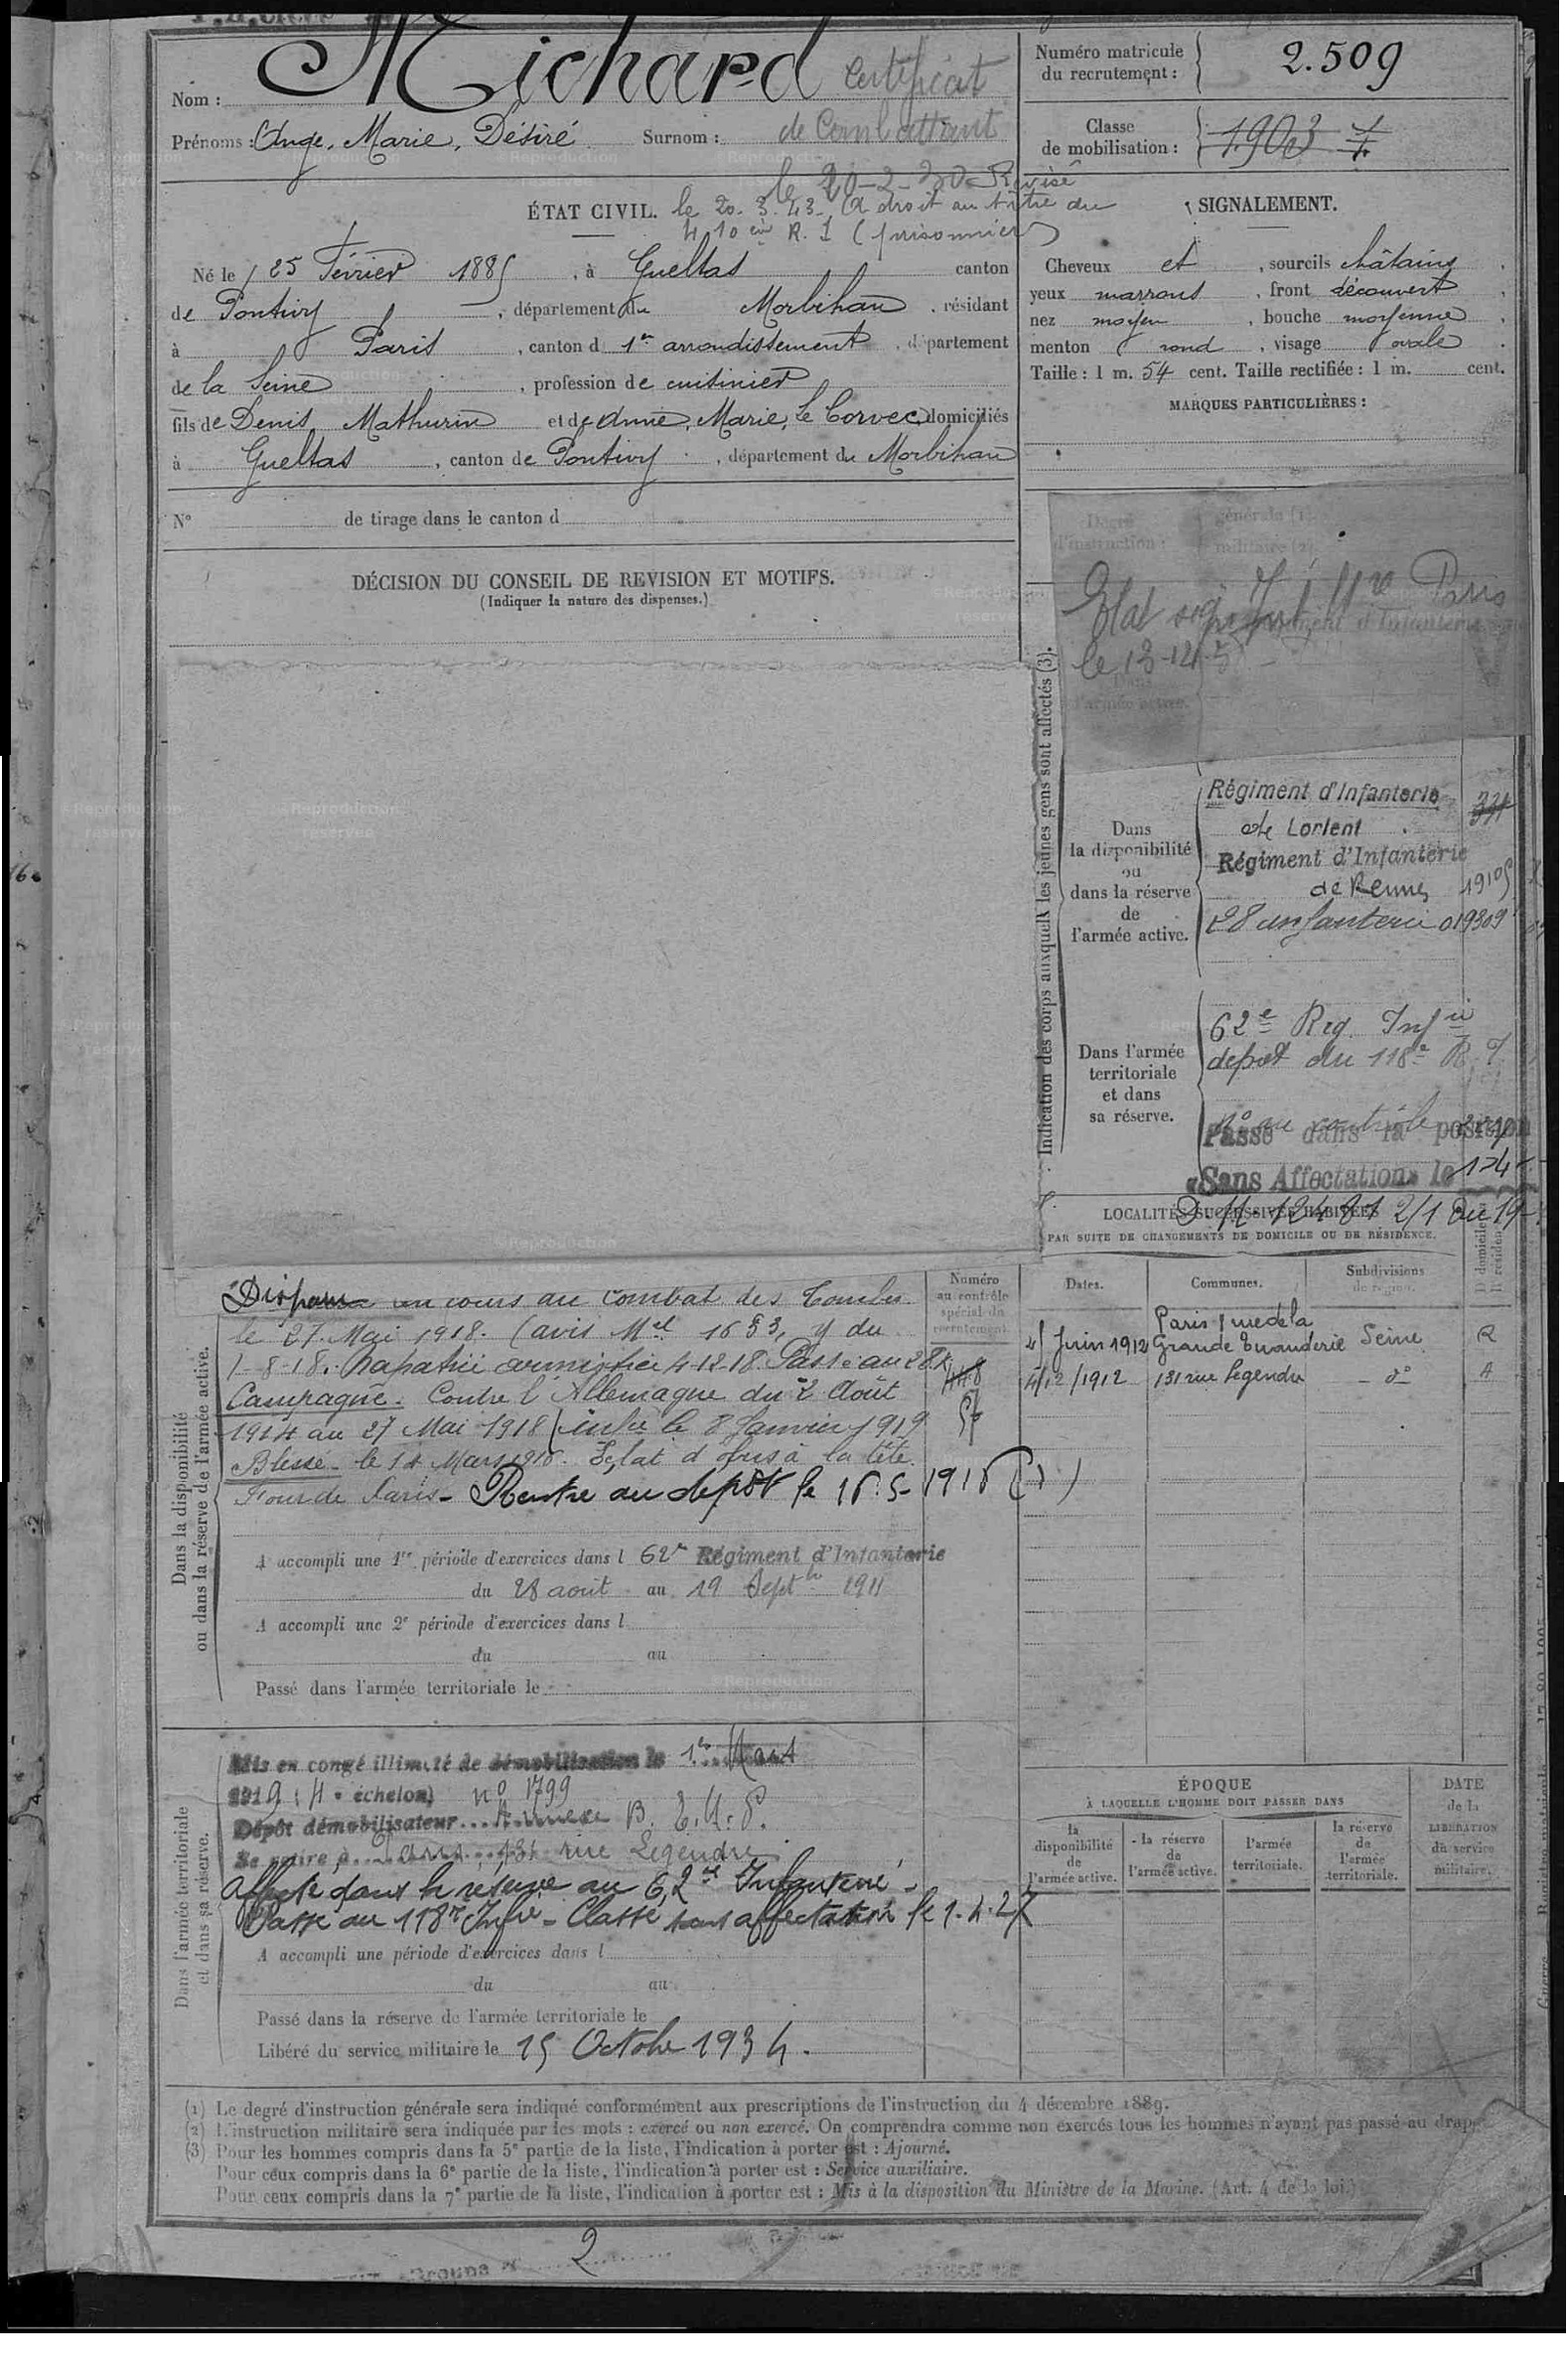 Nom : Michard
Certificat
de Combattant
Prénoms : Ange, Marie, Désiré Surnom :
le 20-2-30 Revisé
ÉTAT CIVIL. le 20. 3. 43. (a droit au titre du
410 R. I (prisonnier)
Né le 25 Février 1885, à Gueltas canton
de Pontivy, département du Morbihan, résidant
à Paris, canton d 1er arrondissement, département
de la Seine, profession de cuisinier
fils de Denis Mathurin et de Anne, Marie, Le Corvec, domiciliés
à Gueltas, canton de Pontivy, département du Morbihan
N° de tirage dans le canton d
DÉCISION DU CONSEIL DE REVISION ET MOTIFS.
(Indiquer la nature des dispenses.)
Numéro matricule
du recrutement :
2.509
Classe
de mobilisation :
1903
SIGNALEMENT.
Cheveux et, sourcils châtains,
yeux marrons, front découvert,
nez moyen, bouche moyenne,
menton rond, visage ovale.
Taille : 1 m. 54 cent. Taille rectifiée : 1 m. cent.
MARQUES PARTICULIÈRES :
Degré
d'instruction :
générale (1)
militaire (2)
Paris
le 13-12
Indication des corps auxquels les jeunes gens sont affectés (3).
Dans
la disponibilité
ou
dans la réserve
de
l'armée active.
Régiment d'Infanterie
de Lorient
Régiment d'Infanterie
de Rennes
28 infanterie 019309
Dans l'armée
territoriale
et dans
sa réserve.
62e Reg. Infie
depot du 118e R. I.
n° au contrôle
Passé dans la position
«Sans Affectation» le
LOCALITÉS SUCCESSIVES HABITÉES
PAR SUITE DE CHANGEMENTS DE DOMICILE OU DE RÉSIDENCE.
Dates. Communes. Subdivisions de région. D domicile R résidence
Juin 1912 Paris rue de la Grande Truanderie Seine R
4/12/1912 131 rue Legendre d° A
Dans la disponibilité
ou dans la réserve de l'armée active.
Numéro
au contrôle
spécial du
recrutement
Disparu en cours au combat des
le 27 Mai 1918. (avis Mel 1653, y du
1-8-18. Rapatrié armistice 4-12-18. Passé au 28
Campagne. Contre l'Allemagne du 2 Août
1914 au 27 Mai 1918 le 8 Janvier 1919
Blessé le 14 Mars 1916. Eclat d'obus à la tête.
Four de Paris - Rentre au depôt le 16-5-1916 (1)
A accompli une 1re période d'exercices dans l 62e Régiment d'Infanterie
du 28 aout au 19 Septbre 1911
A accompli une 2e période d'exercices dans l
du au
Passé dans l'armée territoriale le
Dans l'armée territoriale
et dans sa réserve.
Mis en congé illimité de démobilisation le 1er Mars
1919 (4e échelon) n° 1799
Dépôt démobilisateur Annexe B.
Se retire à Paris, 131 rue Legendre
Affecté dans la réserve au 62e Infanterie -
Passe au 118e Infie - Classé sans affectation le 1.4.27
A accompli une période d'exercices dans l
du au
Passé dans la réserve de l'armée territoriale le
Libéré du service militaire le 15 Octobre 1934.
ÉPOQUE
À LAQUELLE L'HOMME DOIT PASSER DANS
la disponibilité de l'armée active.
la réserve de l'armée active.
l'armée territoriale.
la réserve de l'armée territoriale.
DATE
de la
LIBÉRATION
du service
militaire.
(1) Le degré d'instruction générale sera indiqué conformément aux prescriptions de l'instruction du 4 décembre 1889.
(2) L'instruction militaire sera indiquée par les mots : exercé ou non exercé. On comprendra comme non exercés tous les hommes n'ayant pas passé au drap
(3) Pour les hommes compris dans la 5e partie de la liste, l'indication à porter est : Ajourné.
Pour ceux compris dans la 6e partie de la liste, l'indication à porter est : Service auxiliaire.
Pour ceux compris dans la 7e partie de la liste, l'indication à porter est : Mis à la disposition du Ministre de la Marine. (Art. 4 de la loi.)
2